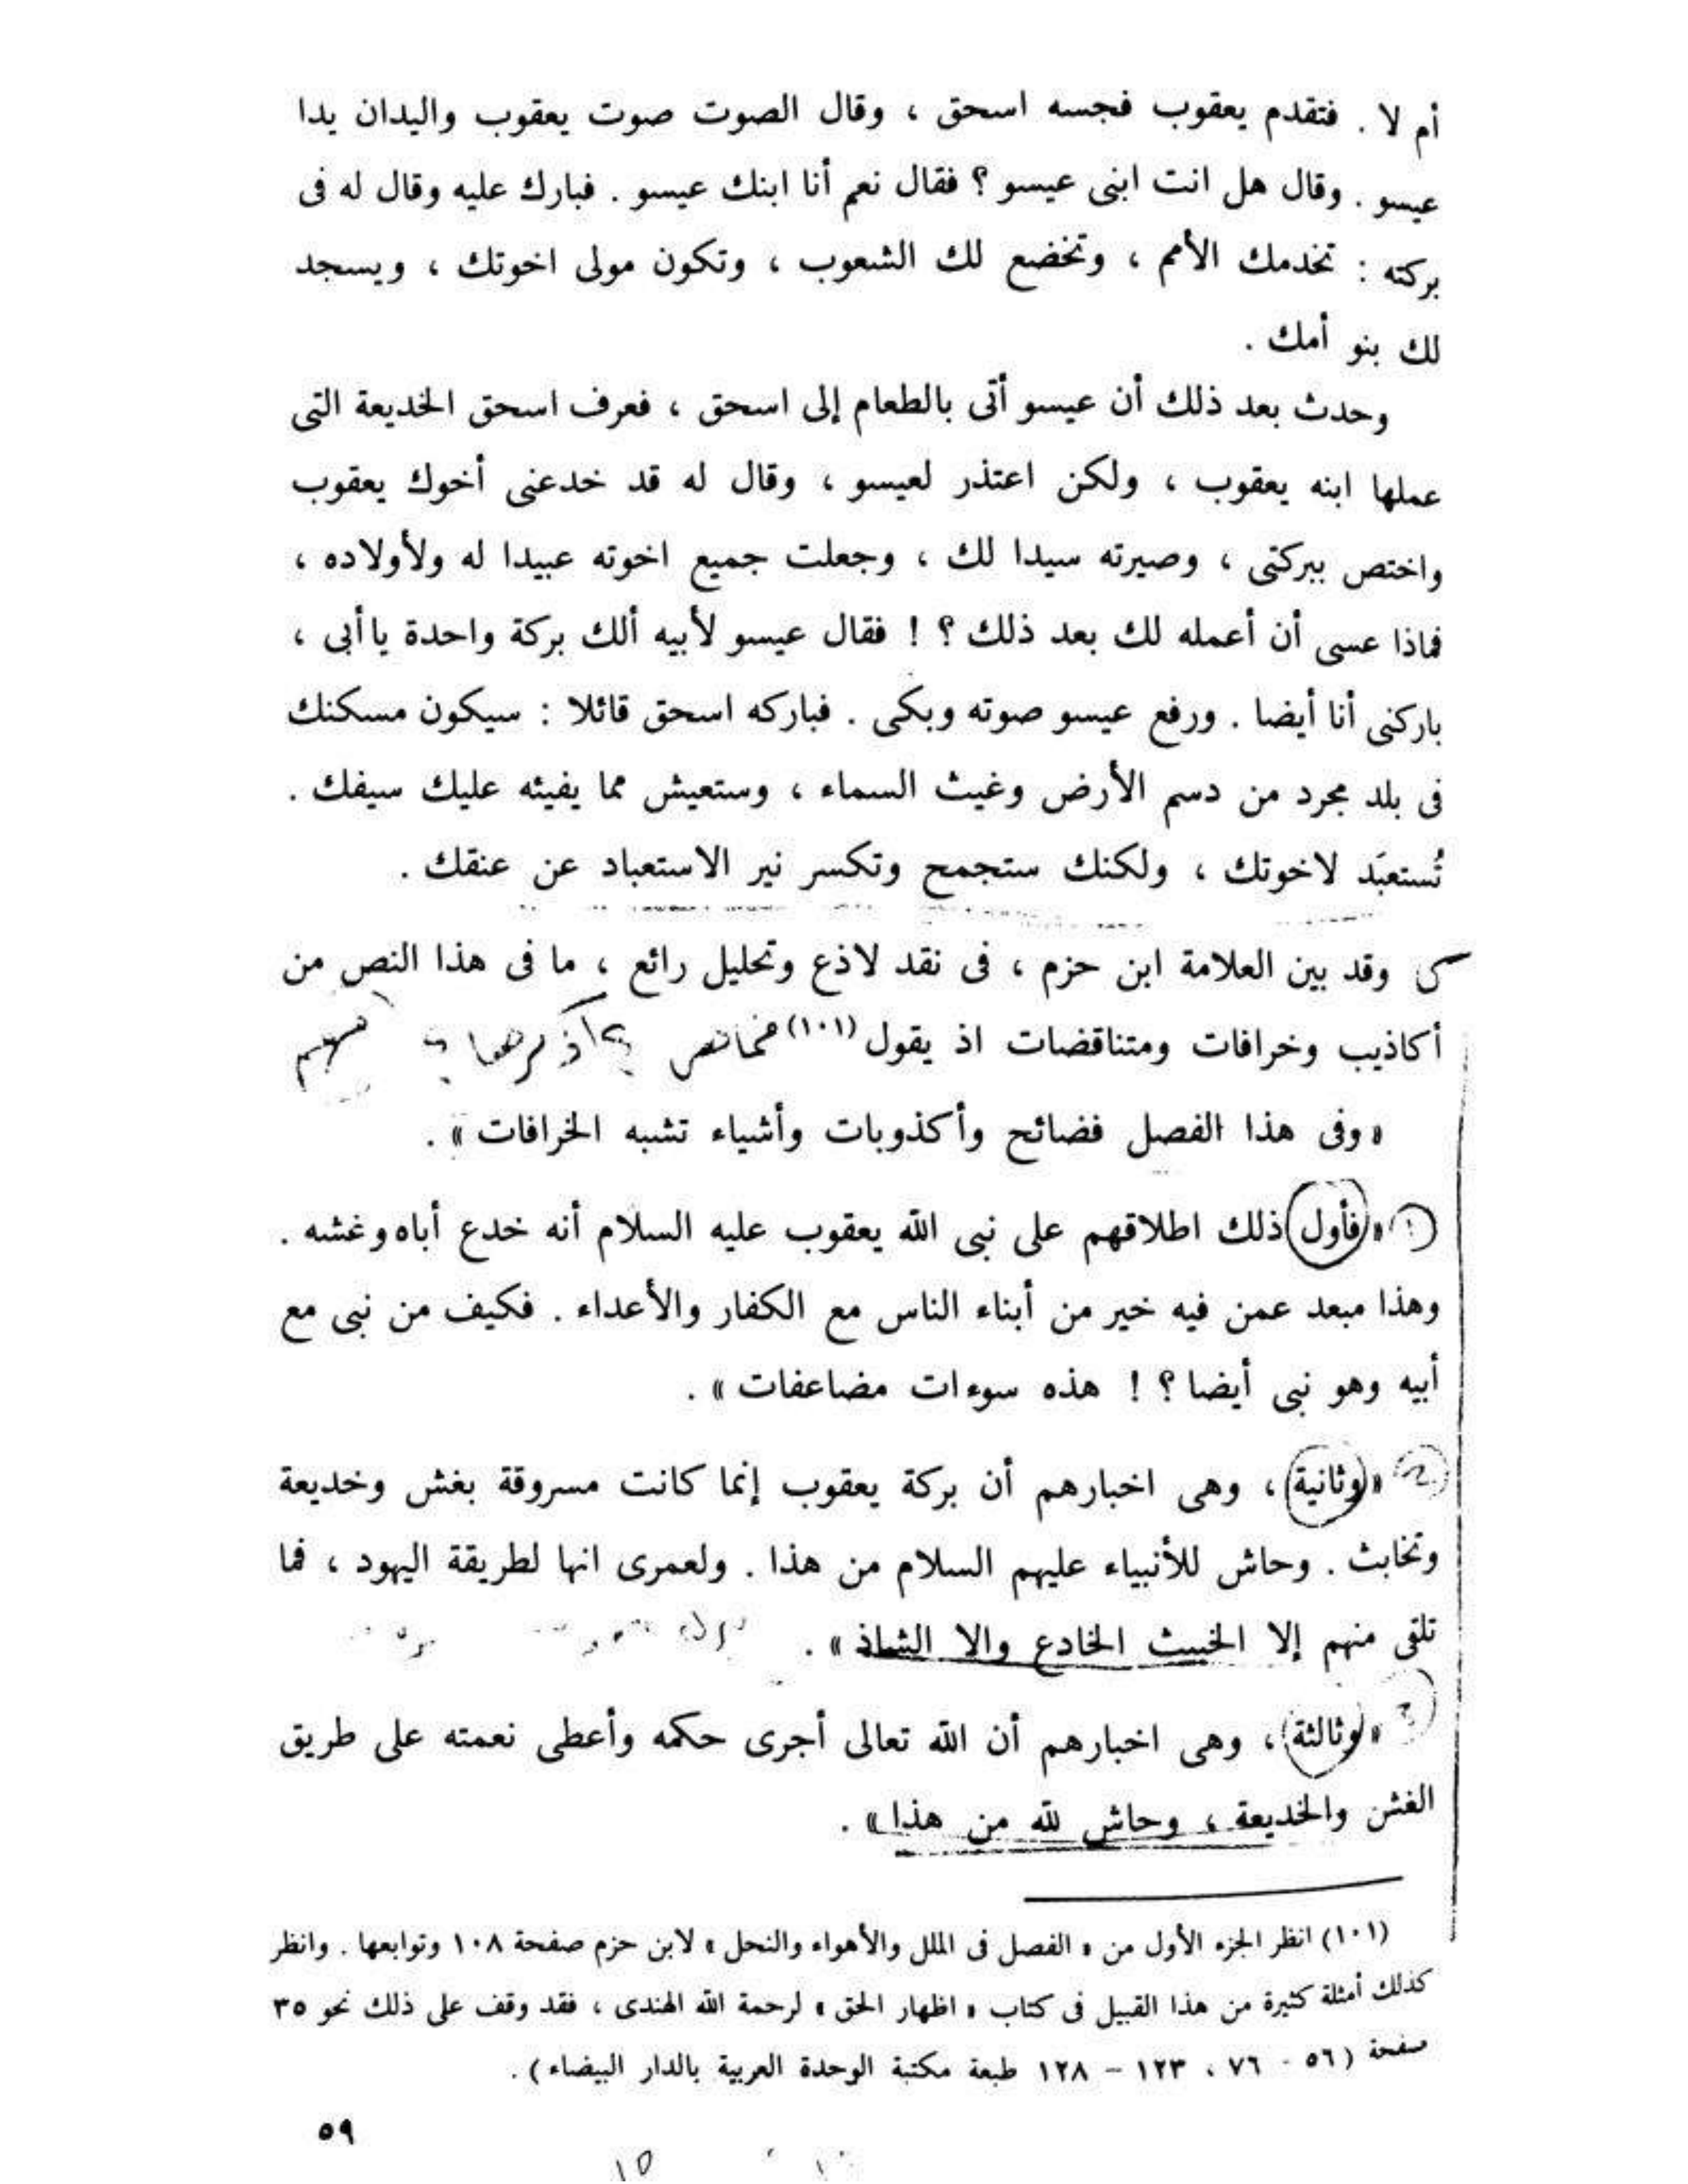 أم لا . فتقدم يعقوب فجسه اسحق ، وقال الصوت صوت يعقوب واليدان يدا
عيسو . وقال هل انت ابنى عيسو ؟ فقال نعم أنا ابنك عيسو . فبارك عليه وقال له فى
بركته : تخدمك الأمم ، وتخضع لك الشعوب ، وتكون مولى اخوتك ، ويسجد
لك بنو أمك .
وحدث بعد ذلك أن عيسو أتى بالطعام إلى اسحق ، فعرف اسحق الخديعة التى
عملها ابنه يعقوب ، ولكن اعتذر لعيسو ، وقال له قد خدعنى أخوك يعقوب
واختص ببركتى ، وصيرته سيدا لك ، وجعلت جميع اخوته عبيدا له ولأولاده ،
فماذا عسى أن أعمله لك بعد ذلك ؟ ! فقال عيسو لأبيه ألك بركة واحدة ياأبى ،
باركنى أنا أيضا . ورفع عيسو صوته وبكى . فباركه اسحق قائلا : سيكون مسكنك
فى بلد مجرد من دسم الأرض وغيث السماء ، وستعيش مما يفيئه عليك سيفك .
تُستعبَد لاخوتك ، ولكنك ستجمح وتكسر نير الاستعباد عن عنقك .
وقد بين العلامة ابن حزم ، فى نقد لاذع وتحليل رائع ، ما فى هذا النص من
أكاذيب وخرافات ومتناقضات اذ يقول (١٠١)
« وفى هذا الفصل فضائح وأكذوبات وأشياء تشبه الخرافات » .
« فأول ذلك اطلاقهم على نبى الله يعقوب عليه السلام أنه خدع أباه وغشه .
وهذا مبعد عمن فيه خير من أبناء الناس مع الكفار والأعداء . فكيف من نبى مع
أبيه وهو نبى أيضا ؟ ! هذه سوءات مضاعفات » .
« وثانية ، وهى اخبارهم أن بركة يعقوب إنما كانت مسروقة بغش وخديعة
وتخابث . وحاش للأنبياء عليهم السلام من هذا . ولعمرى انها لطريقة اليهود ، فما
تلقى منهم إلا الخبيث الخادع والا الشاذ » .
« وثالثة ، وهى اخبارهم أن الله تعالى أجرى حكمه وأعطى نعمته على طريق
الغش والخديعة ، وحاش لله من هذا » .
(١٠١) انظر الجزء الأول من « الفصل فى الملل والأهواء والنحل » لابن حزم صفحة ١٠٨ وتوابعها . وانظر
كذلك أمثلة كثيرة من هذا القبيل فى كتاب « اظهار الحق » لرحمة الله الهندى ، فقد وقف على ذلك نحو ٣٥
صفحة (٥٦ - ٧٦ ، ١٢٣ - ١٢٨ طبعة مكتبة الوحدة العربية بالدار البيضاء) .
٥٩
١٥